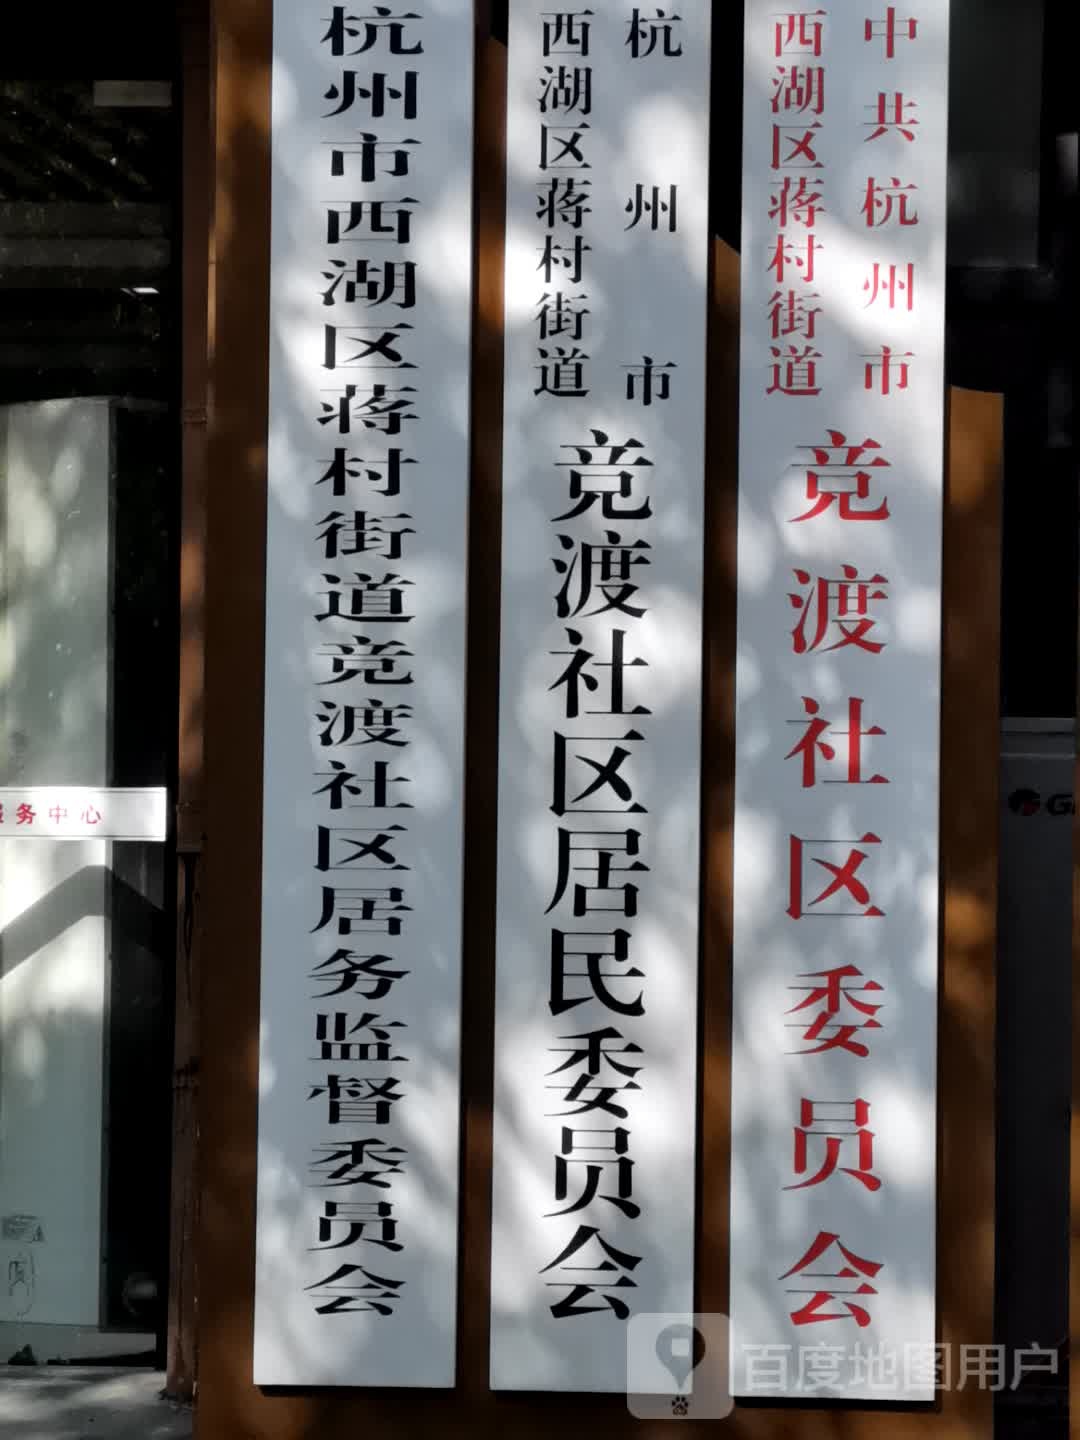 中共杭州市
西湖区蒋村街道
竞渡社区委员会
杭州市
西湖区蒋村街道
竞渡社区居民委员会
杭州市西湖区蒋村街道竞渡社区居务监督委员会
服务中心
百度地图用户